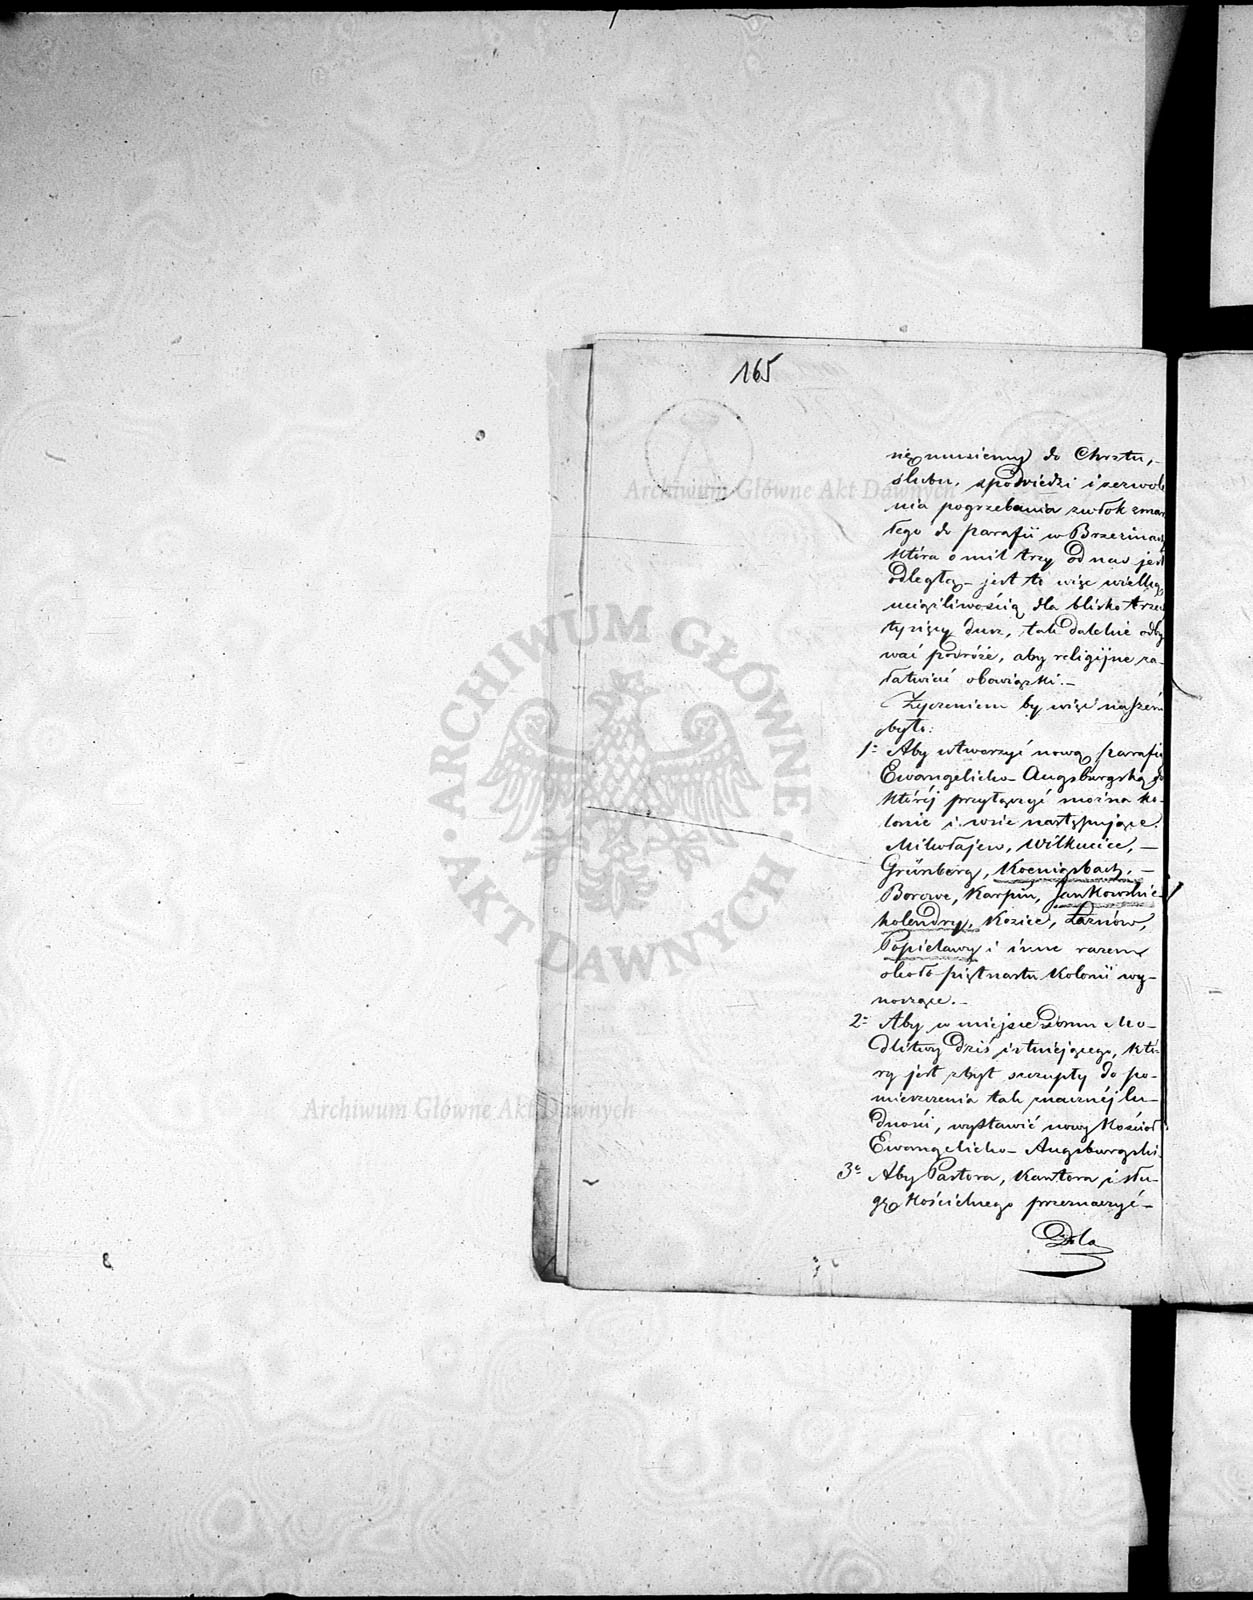 165
nię musiemy do Chrztu,
ślubu, spowiedzi i zezwole
nia pogrzebania zwłok zmar
łego do parafii w Brzezinach
która o mil trzy od nas jest
odległą – jest to więc wielką
uciążliwością dla blisko trzech
tysięcy dusz, tak dalekie odby
wać podróże, aby religijne za-
łatwiać obowiązki. –
Życzeniem by więc naszém
było:
1= Aby utworzyć nową parafię
Ewangelicko-Augsburgską do
któréj przyłączyć można ko-
lonie i wsie następujące:
Mikołajew, Wilkucice, –
Grünberg, Koenigsbach, –
Borowe, Karpin, Jankowskie
holendry, Kozice, Łaznów,
Popielawy i inne razem
około piętnastu Kolonii wy-
noszące. –
2= Aby w miejsce Domu Mo-
dlitwy dziś istniejącego, któ-
ry jest zbyt szczupły do po-
mieszczenia tak znacznéj lu-
dności, wystawić nowy Kościół
Ewangelicko-Augsburgski.
3= Aby Pastora, Kantora i słu-
gę Kościelnego przeznaczyć –
Dla
Archiwum Główne Akt Dawnych
ARCHIWUM GŁÓWNE
AKT DAWNYCH
Archiwum Główne Akt Dawnych